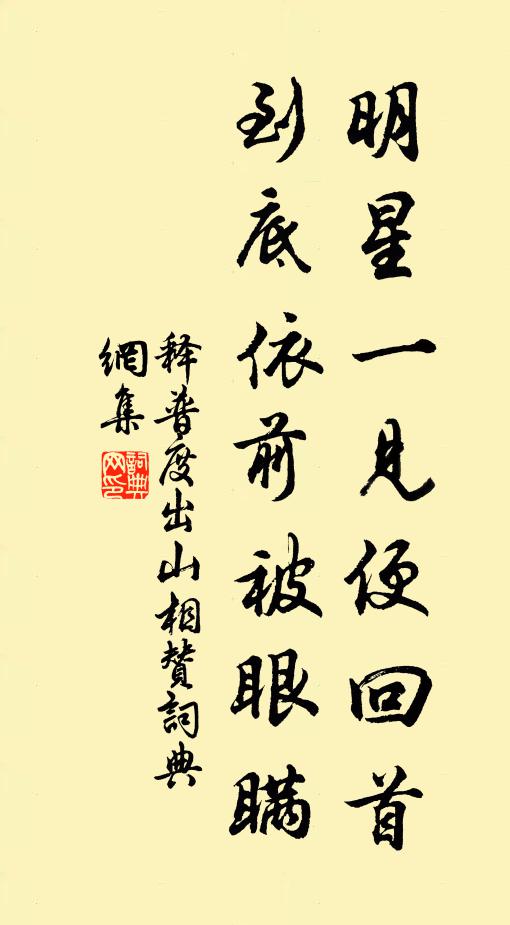 明星一見便回首
到底依前被眼瞞
释普度出山相赞詞典
網集
詞典网印